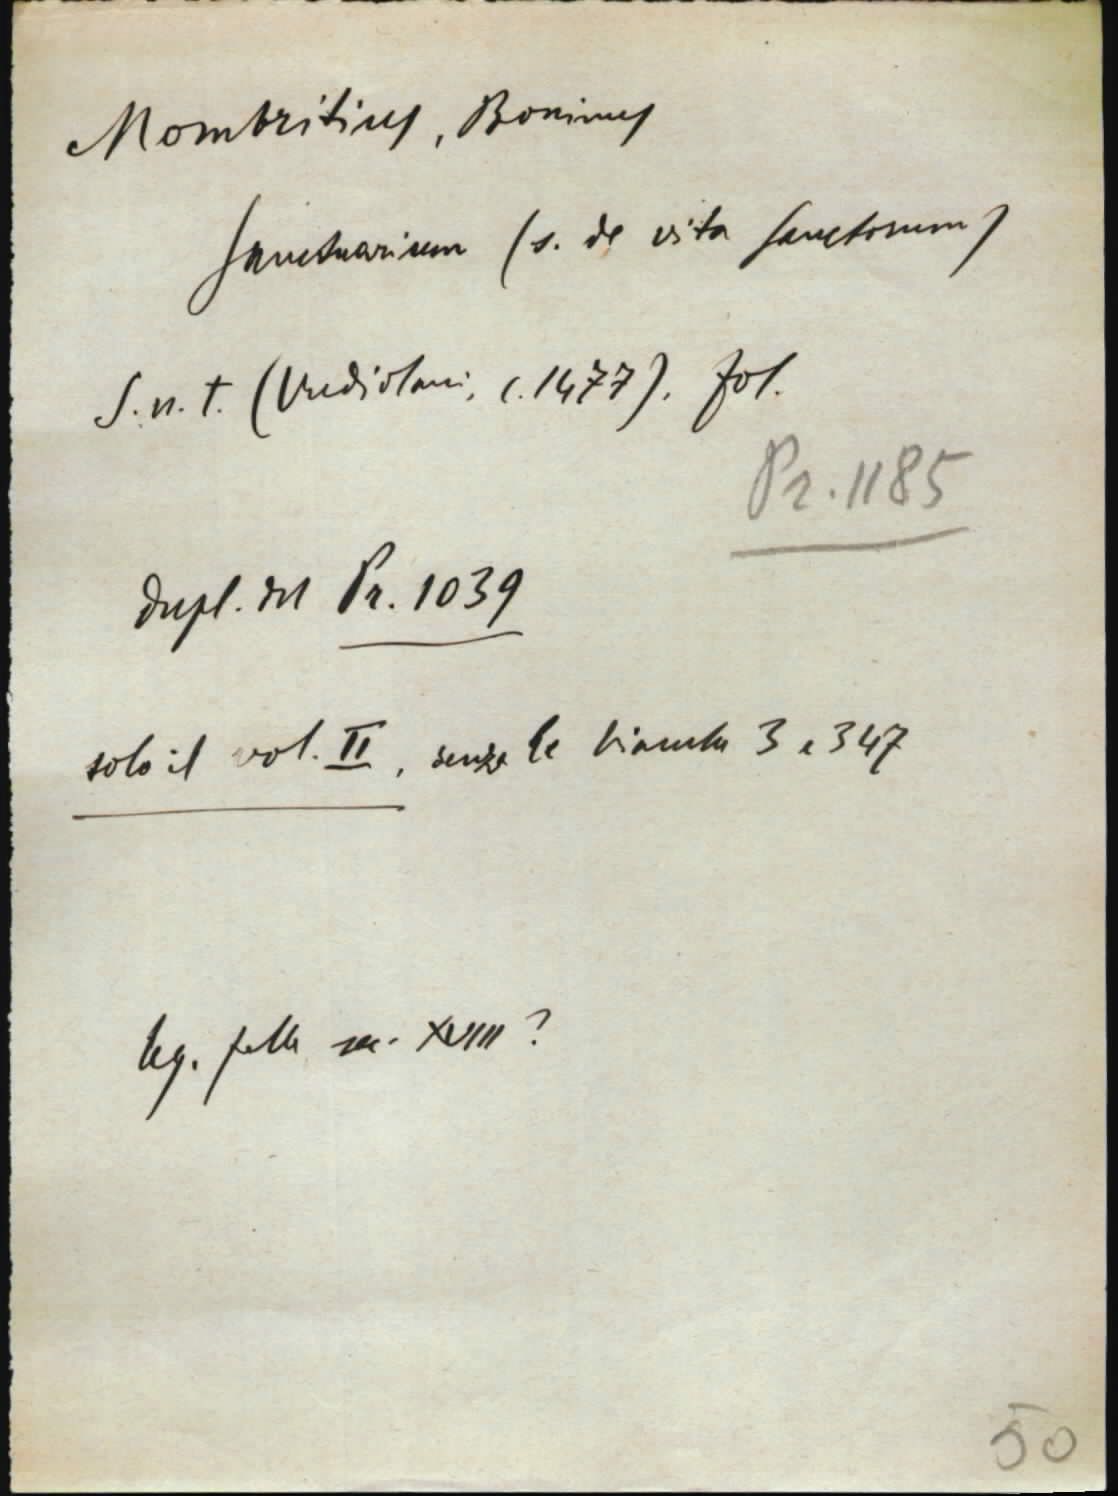 Mombritius, Boninus
Sanctuarium (s. de vita sanctorum)
S. n. t. (Mediolani, c. 1477). fol.
Pr. 1185
dupl. del Pr. 1039
solo il vol. II, senza le bianche 3 e 347
leg. pelle sec. XVIII ?
50